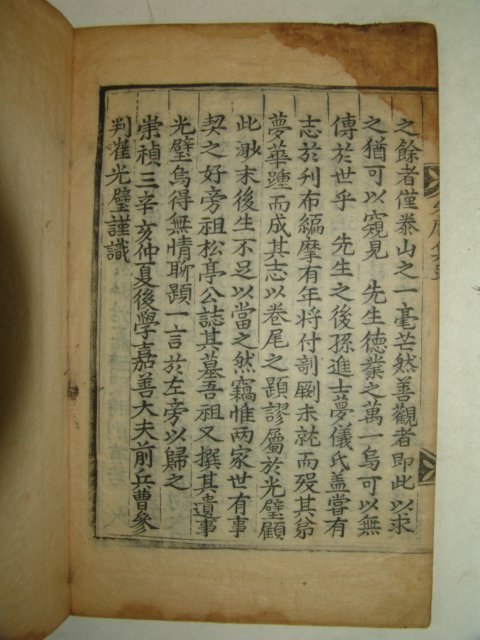 之餘者僅泰山之一毫芒然善觀者即此以求
之猶可以窺見　先生德業之萬一烏可以無
傳於世乎　先生之後孫進士夢儀氏盖嘗有
志於刊布編摩有年將付剞劂未就而歿其弟
夢華踵而成其志以卷尾之題謬屬於光璧顧
此渺末後生不足以當之然竊惟兩家世有事
契之好旁祖松亭公誌其墓吾祖又撰其遺事
光璧烏得無情聊題一言於左旁以歸之
崇禎三辛亥仲夏後學嘉善大夫前兵曹參
判崔光璧謹識